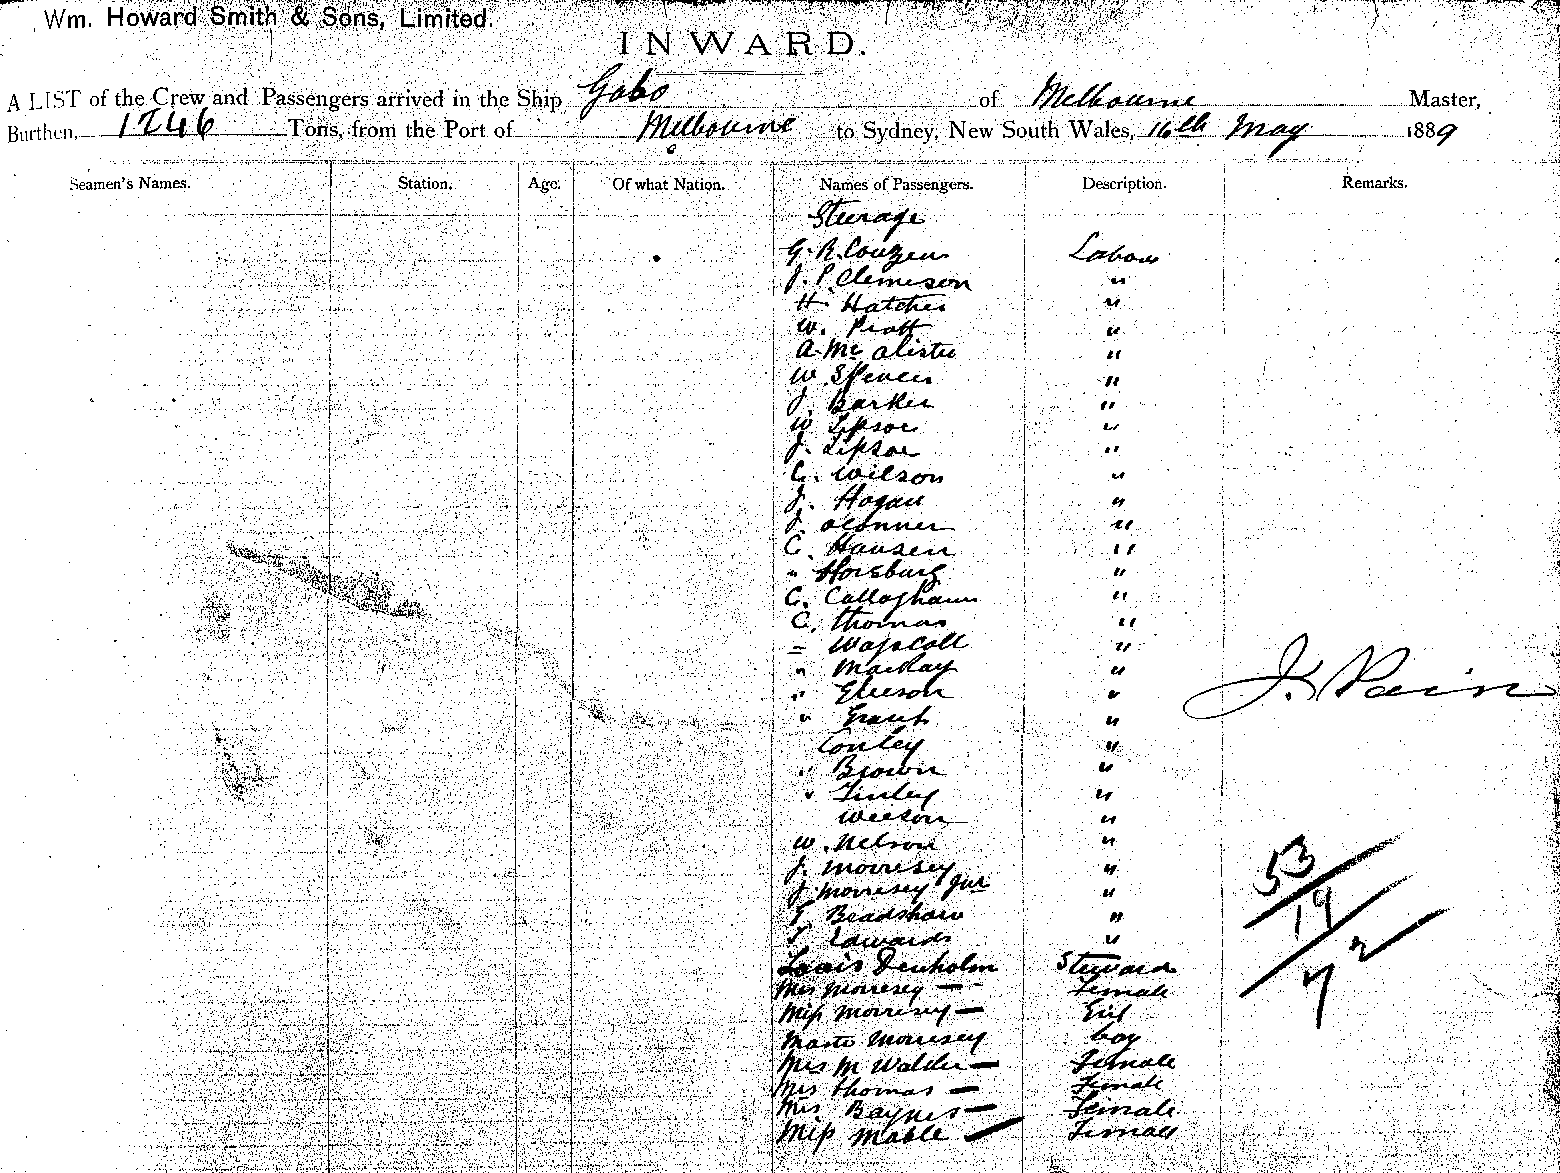 Wm. Howard Smith & Sons, Limited.
INWARD.
A LIST of the Crew and Passengers arrived in the Ship Gabo of Melbourne Master,
Burthen, 1246 Tons, from the Port of Melbourne to Sydney, New South Wales, 16th May 1889
Seamen's Names. Station. Age. Of what Nation. Names of Passengers. Description. Remarks.
Steerage
G. R. Couzens Labour
J. P. Clemieson "
H Hatcher "
W. Pratt "
A. McAlister "
W Spencer "
J. Barker "
W Lipsoe "
J. Lipsoe "
C. Wilson "
J. Hogan "
J. oConner "
C. Hansen "
" Horsburg "
C. Callaghann "
C. Thomas "
" "
" MacKay "
" Gleeson "
" Grant "
Conley "
" Brown "
" Finley "
Weeson "
W. Nelson "
J. Morresey "
J Morresey Jnr "
T. Bradshaw "
T Edwards "
Louis Denholm Steward
Mrs Morresey — Female
Miss Morresey — Girl
Master Morresey boy
Mrs M Walder — Female
Mrs Thomas — Female
Mrs Baynes — Female
Miss Mable — Female
J. Pain
53
19
72